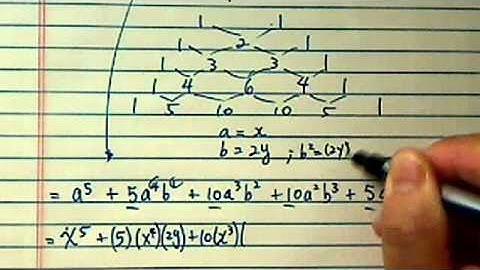 1 1
1 2 1
1 3 3 1
1 4 6 4 1
1 5 10 10 5 1
a = x
b = 2y ; b² = (2y)
= a⁵ + 5a⁴b¹ + 10a³b² + 10a²b³ + 5
= x⁵ + (5)(x⁴)(2y) + 10(x³)(